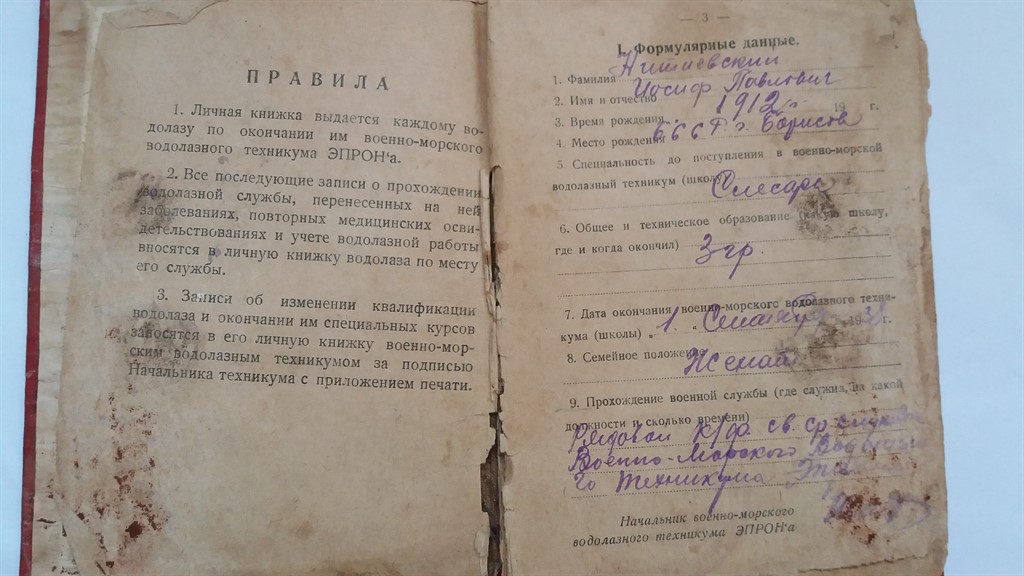 ПРАВИЛА
1. Личная книжка выдается каждому во-
долазу по окончании им военно-морского
водолазного техникума ЭПРОН‘а.
2. Все последующие записи о прохождении
водолазной службы, перенесенных на ней
заболеваниях, повторных медицинских осви-
детельствованиях и учете водолазной работы
вносятся в личную книжку водолаза по месту
его службы.
3. Записи об изменении квалификации
водолаза и окончании им специальных курсов
заносятся в его личную книжку военно-мор-
ским водолазным техникумом за подписью
Начальника техникума с приложением печати.
— 3 —
I. Формулярные данные.
1. Фамилия
2. Имя и отчество Иосиф Павлович
3. Время рождения 1912 г. 19 г.
4. Место рождения г. Борисов
5. Специальность до поступления в военно-морской
водолазный техникум (школу) Слесарь
6. Общее и техническое образование (какую школу,
где и когда окончил) 3 гр.
7. Дата окончания военно-морского водолазного техни-
кума (школы) 1. 193 г.
8. Семейное положение Женат
9. Прохождение военной службы (где служил, на какой
должности и сколько времени)
Рядовой к/ф св. ср.
Военно-Морского
го техникума
Начальник военно-морского
водолазного техникума ЭПРОН‘а